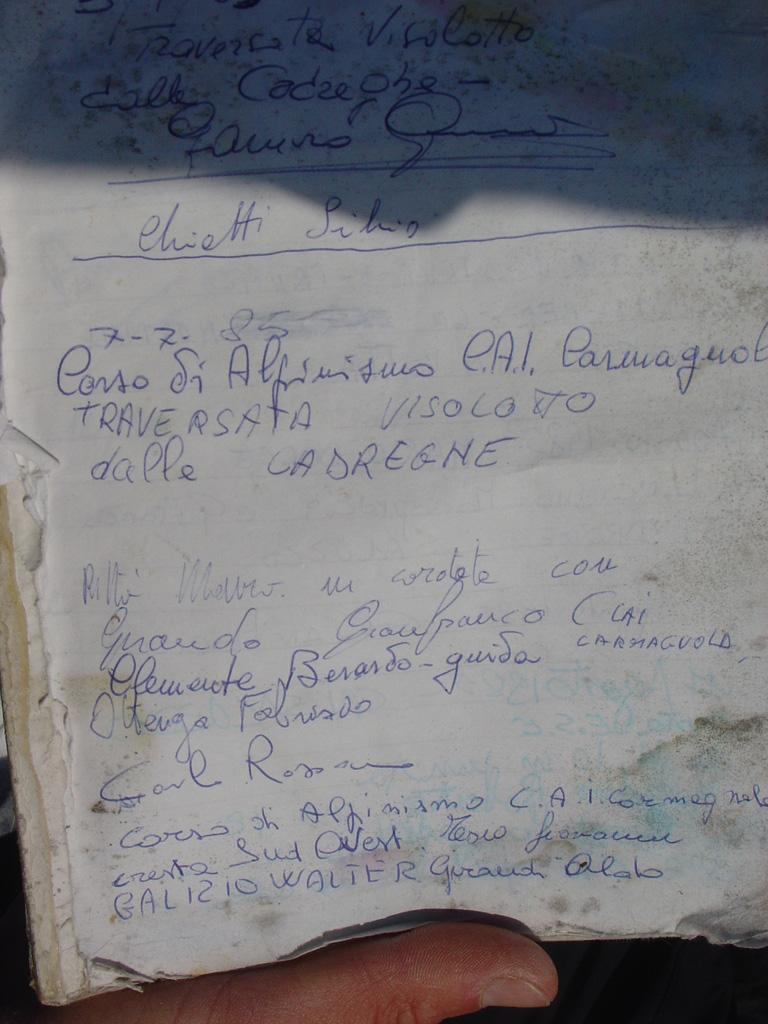 Traversata Visolotto
dalle Cadreghe -
Chiatti Silvio
7-7-85
Corso di Alpinismo C.A.I. Carmagnol
TRAVERSATA VISOLOTTO
dalle CADREGNE
Mauro in cordata con
Girando Gianfranco CAI
CARMAGNOLA
Clemente Berardo - guida
Ottenga Fabrizio
Carlo Rossano
corso di Alpinismo C.A.I. Carmagnola
cresta Sud Ovest Giovanni
GALIZIO WALTER Girando Aldo